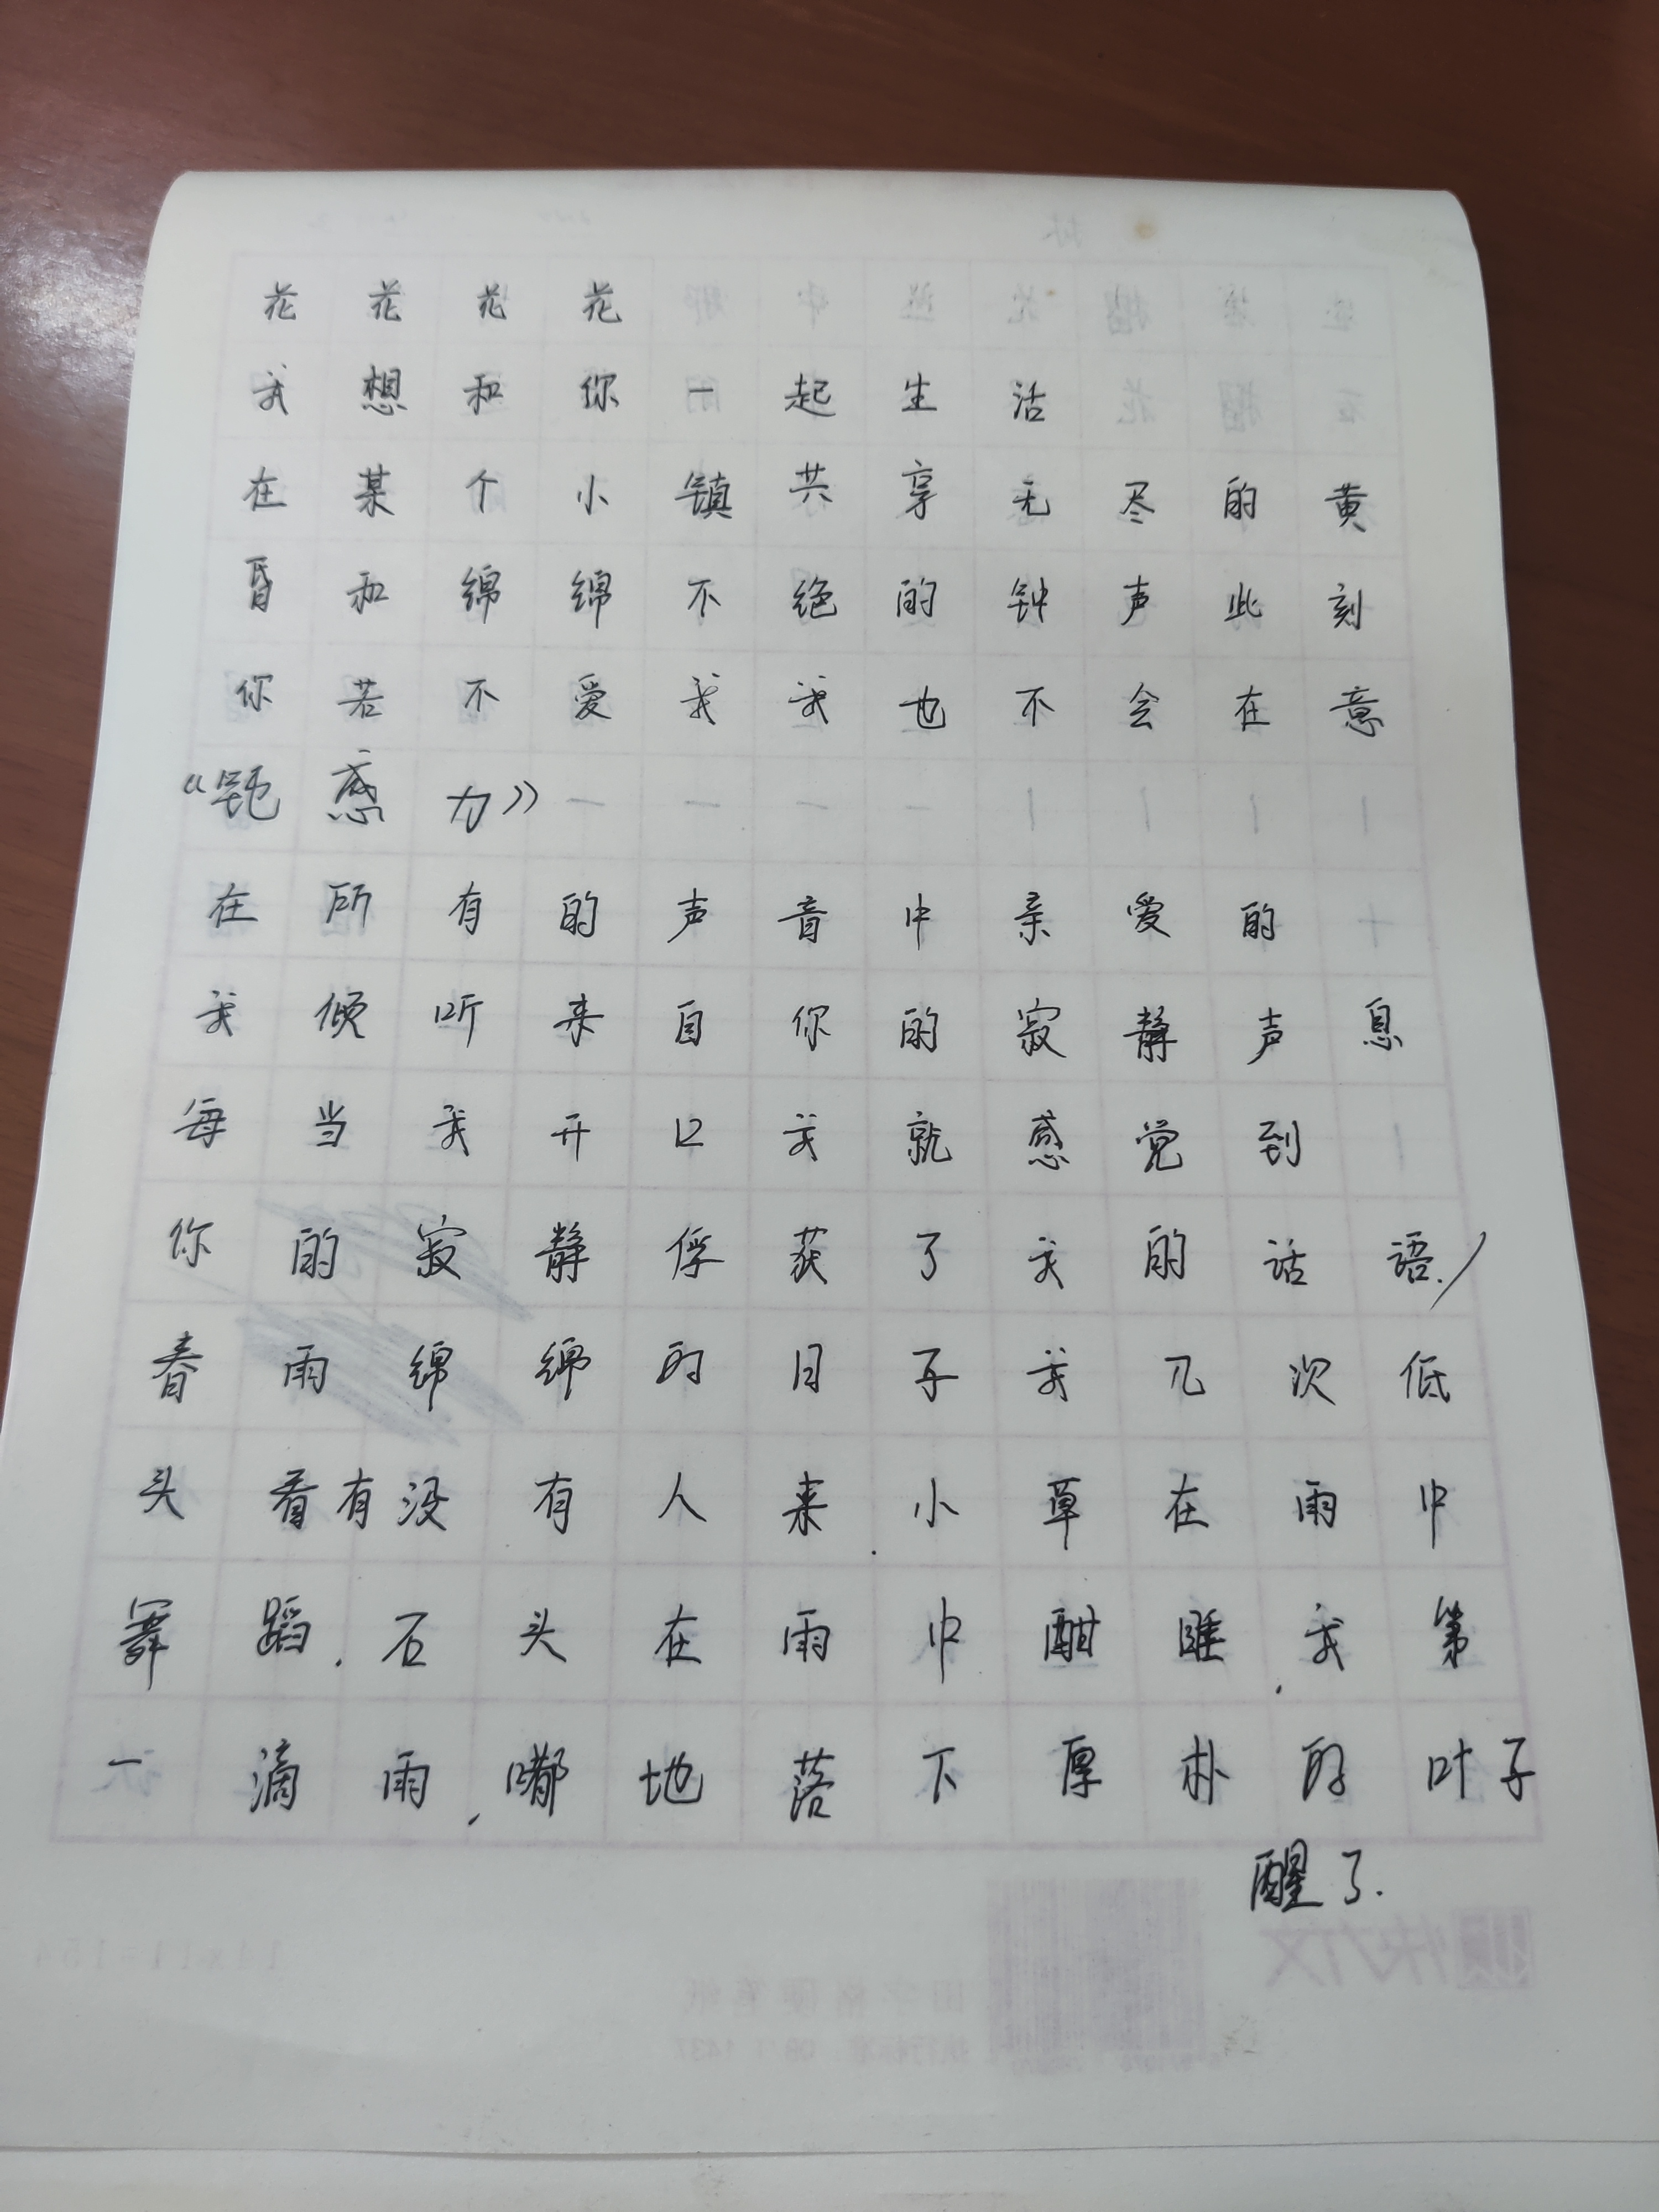 花花花花
我想和你一起生活
在某个小镇共享无尽的黄
昏和绵绵不绝的钟声此刻
你若不爱我我也不会在意
感力》
在所有的声音中亲爱的
我倾听来自你的寂静声息
每当我开口我就感觉到
你的寂静俘获了我的话语./
春雨绵绵的日子我几次低
头看有没有人来.小草在雨中
舞蹈.石头在雨中酣睡.我第
一滴雨,嘟地落下厚朴的叶子
醒了.